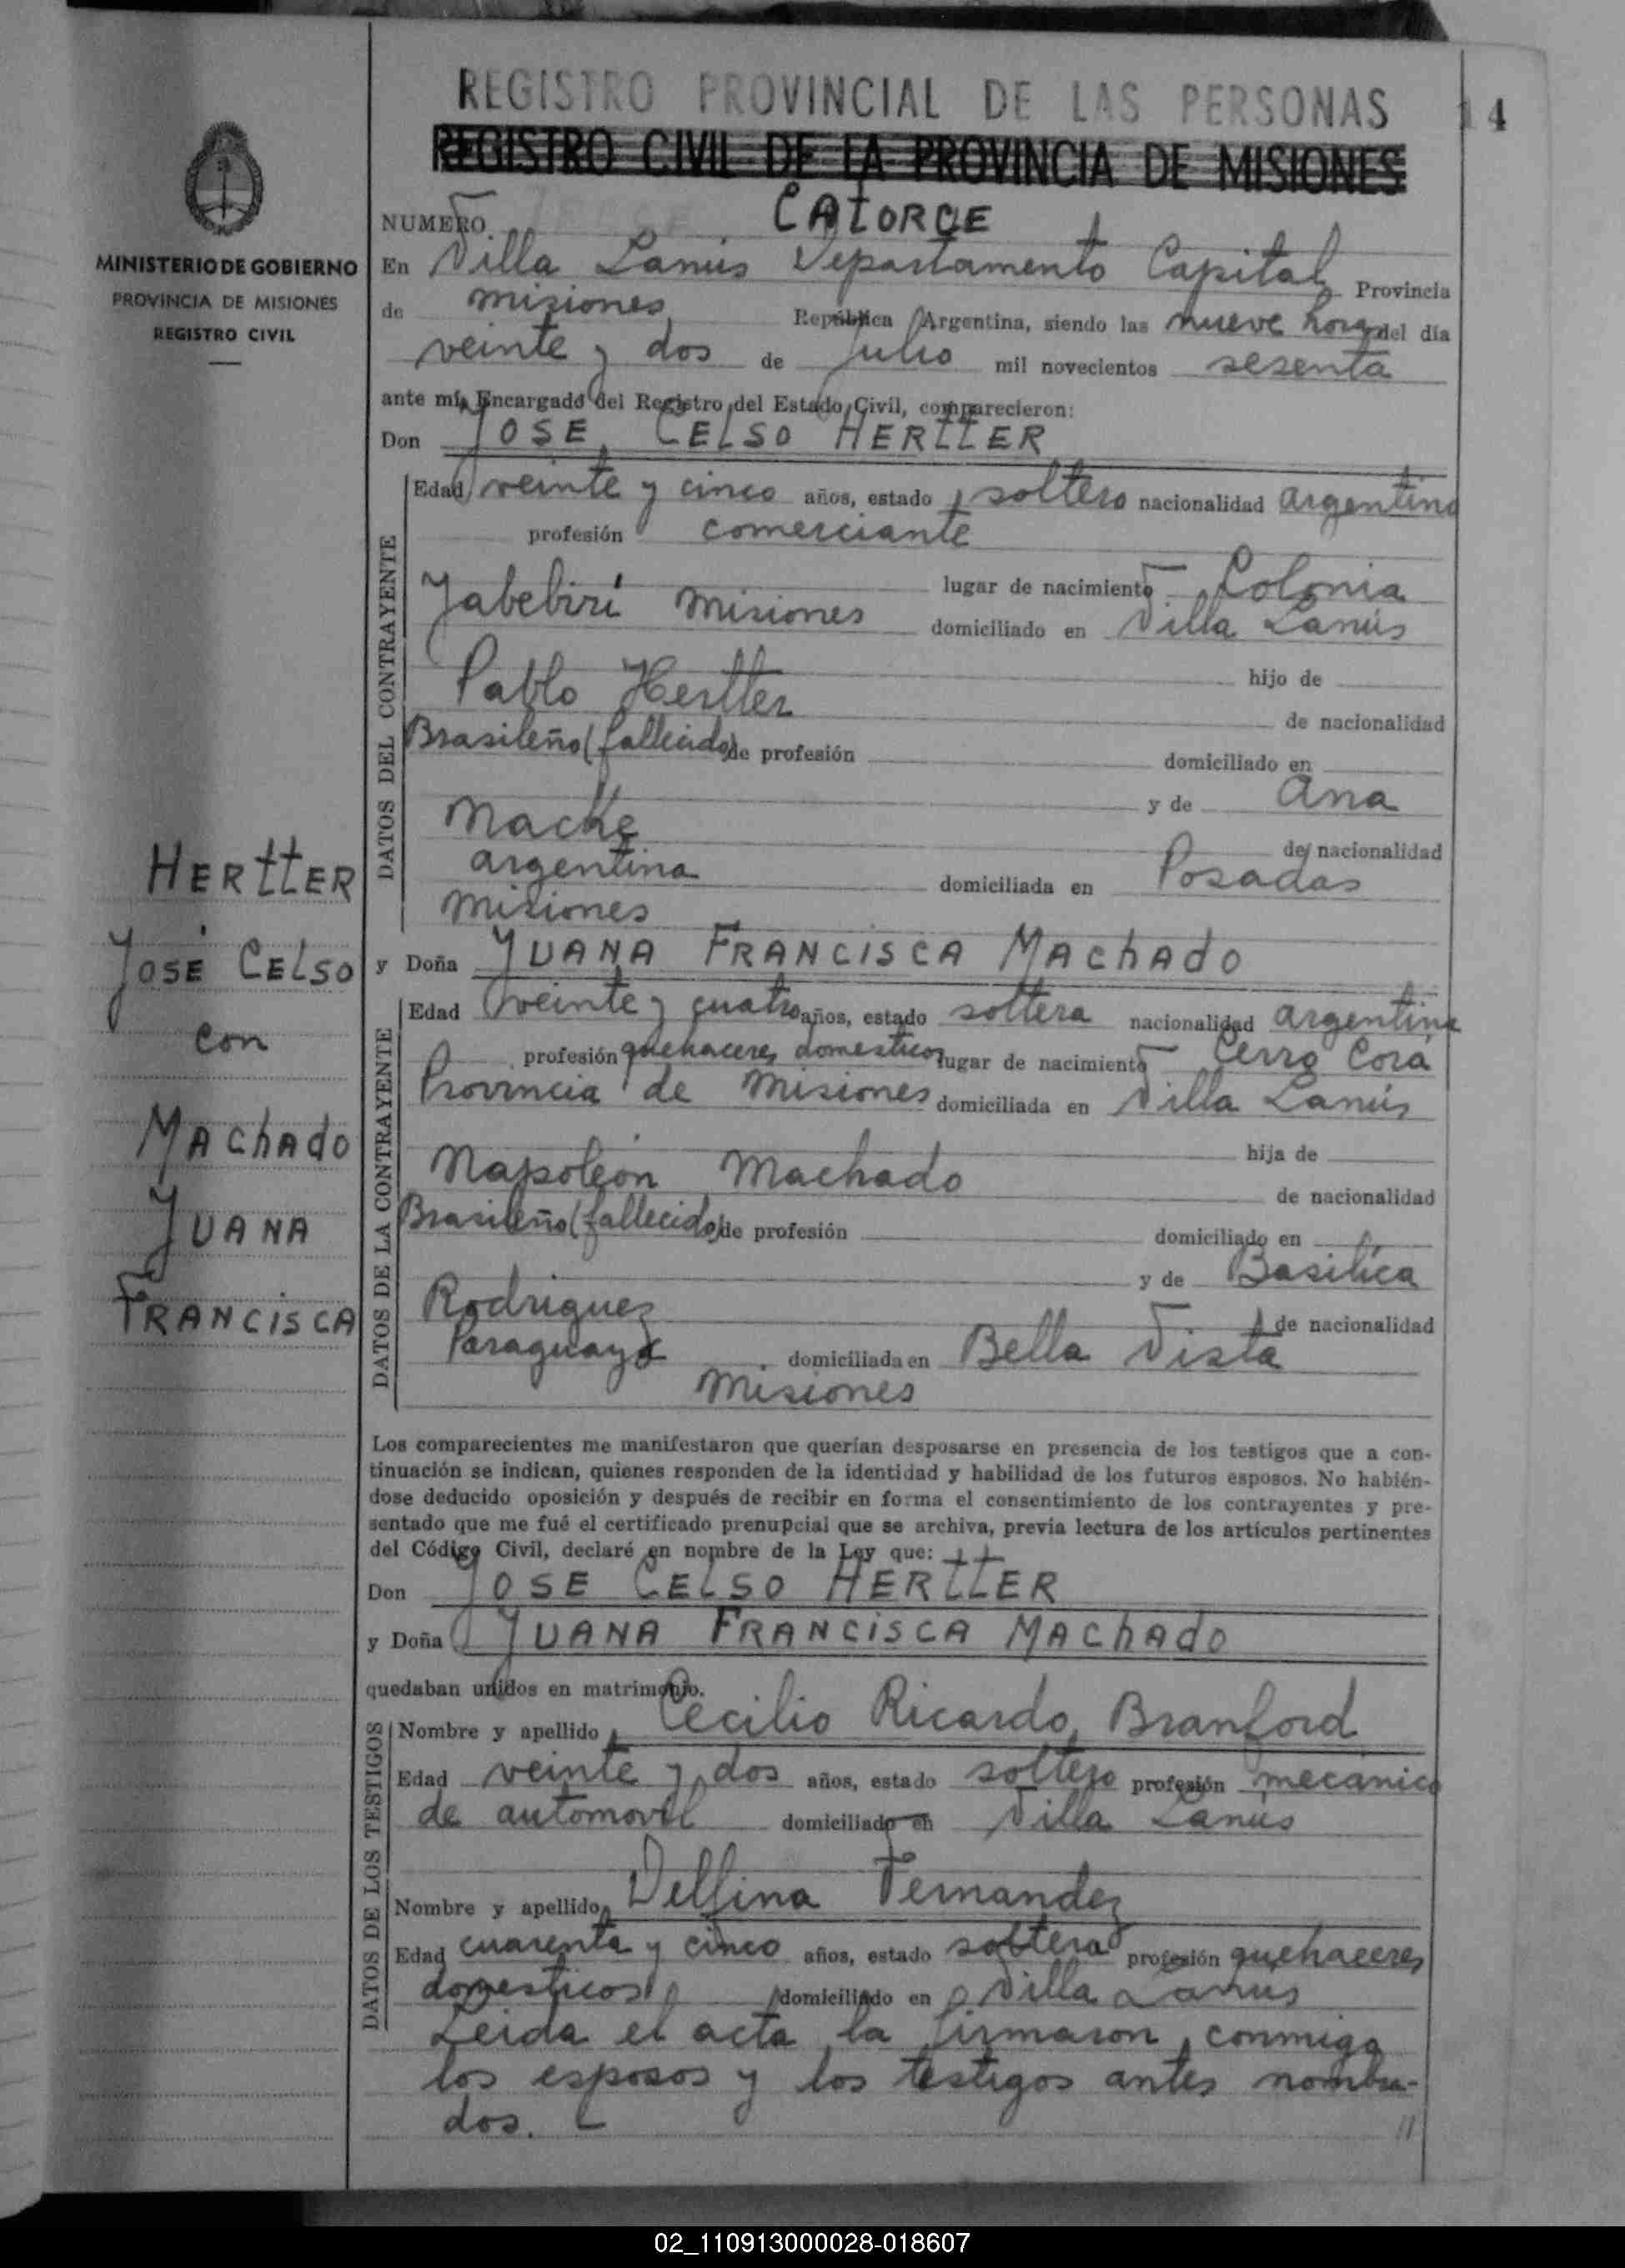 REGISTRO PROVINCIAL DE LAS PERSONAS
14
REGISTRO CIVIL DE LA PROVINCIA DE MISIONES
MINISTERIO DE GOBIERNO
PROVINCIA DE MISIONES
REGISTRO CIVIL
NUMERO CATORCE
En Villa Lanús Departamento Capital Provincia
de misiones República Argentina, siendo las nueve horas del día
veinte y dos de Julio mil novecientos sesenta
ante mí, Encargado del Registro del Estado Civil, comparecieron:
Don JOSE CELSO HERTTER
DATOS DEL CONTRAYENTE
Edad veinte y cinco años, estado soltero nacionalidad argentina
profesión comerciante
lugar de nacimiento Colonia
Yabebirí misiones domiciliado en Villa Lanús
hijo de
Pablo Hertter de nacionalidad
Brasileño (fallecido) de profesión domiciliado en
y de Ana
Macke de nacionalidad
argentina domiciliada en Posadas
misiones
y Doña JUANA FRANCISCA MAChAdO
DATOS DE LA CONTRAYENTE
Edad veinte y cuatro años, estado soltera nacionalidad argentina
profesión quehaceres domesticos lugar de nacimiento Cerro Corá
Provincia de Misiones domiciliada en Villa Lanús
hija de
Napoleón Machado de nacionalidad
Brasileño (fallecido) de profesión domiciliado en
y de Basilica
Rodriguez de nacionalidad
Paraguaya domiciliada en Bella Vista
misiones
HERttER
JOSE CELSO
con
MAChAdO
JUANA
FRANCISCA
Los comparecientes me manifestaron que querían desposarse en presencia de los testigos que a con-
tinuación se indican, quienes responden de la identidad y habilidad de los futuros esposos. No habién-
dose deducido oposición y después de recibir en forma el consentimiento de los contrayentes y pre-
sentado que me fué el certificado prenupcial que se archiva, previa lectura de los artículos pertinentes
del Código Civil, declaré en nombre de la Ley que:
Don JOSE CELSO HERTTER
y Doña JUANA FRANCISCA MAChAdO
quedaban unidos en matrimonio.
DATOS DE LOS TESTIGOS
Nombre y apellido Cecilio Ricardo Branford
Edad veinte y dos años, estado soltero profesión mecanico
de automovil domiciliado en Villa Lanús
Nombre y apellido Delfina Fernandez
Edad cuarenta y cinco años, estado soltera profesión quehaceres
domesticos domiciliado en Villa Lanus
Leida el acta la firmaron conmigo
los esposos y los testigos antes nombra-
dos.
02_110913000028-018607